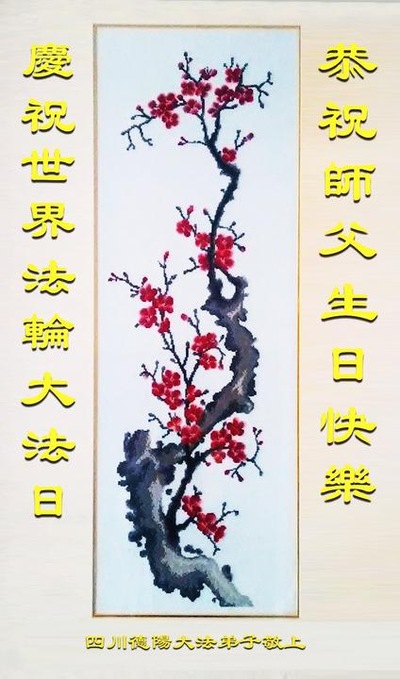 恭祝師父生日快樂
慶祝世界法輪大法日
四川德陽大法弟子敬上